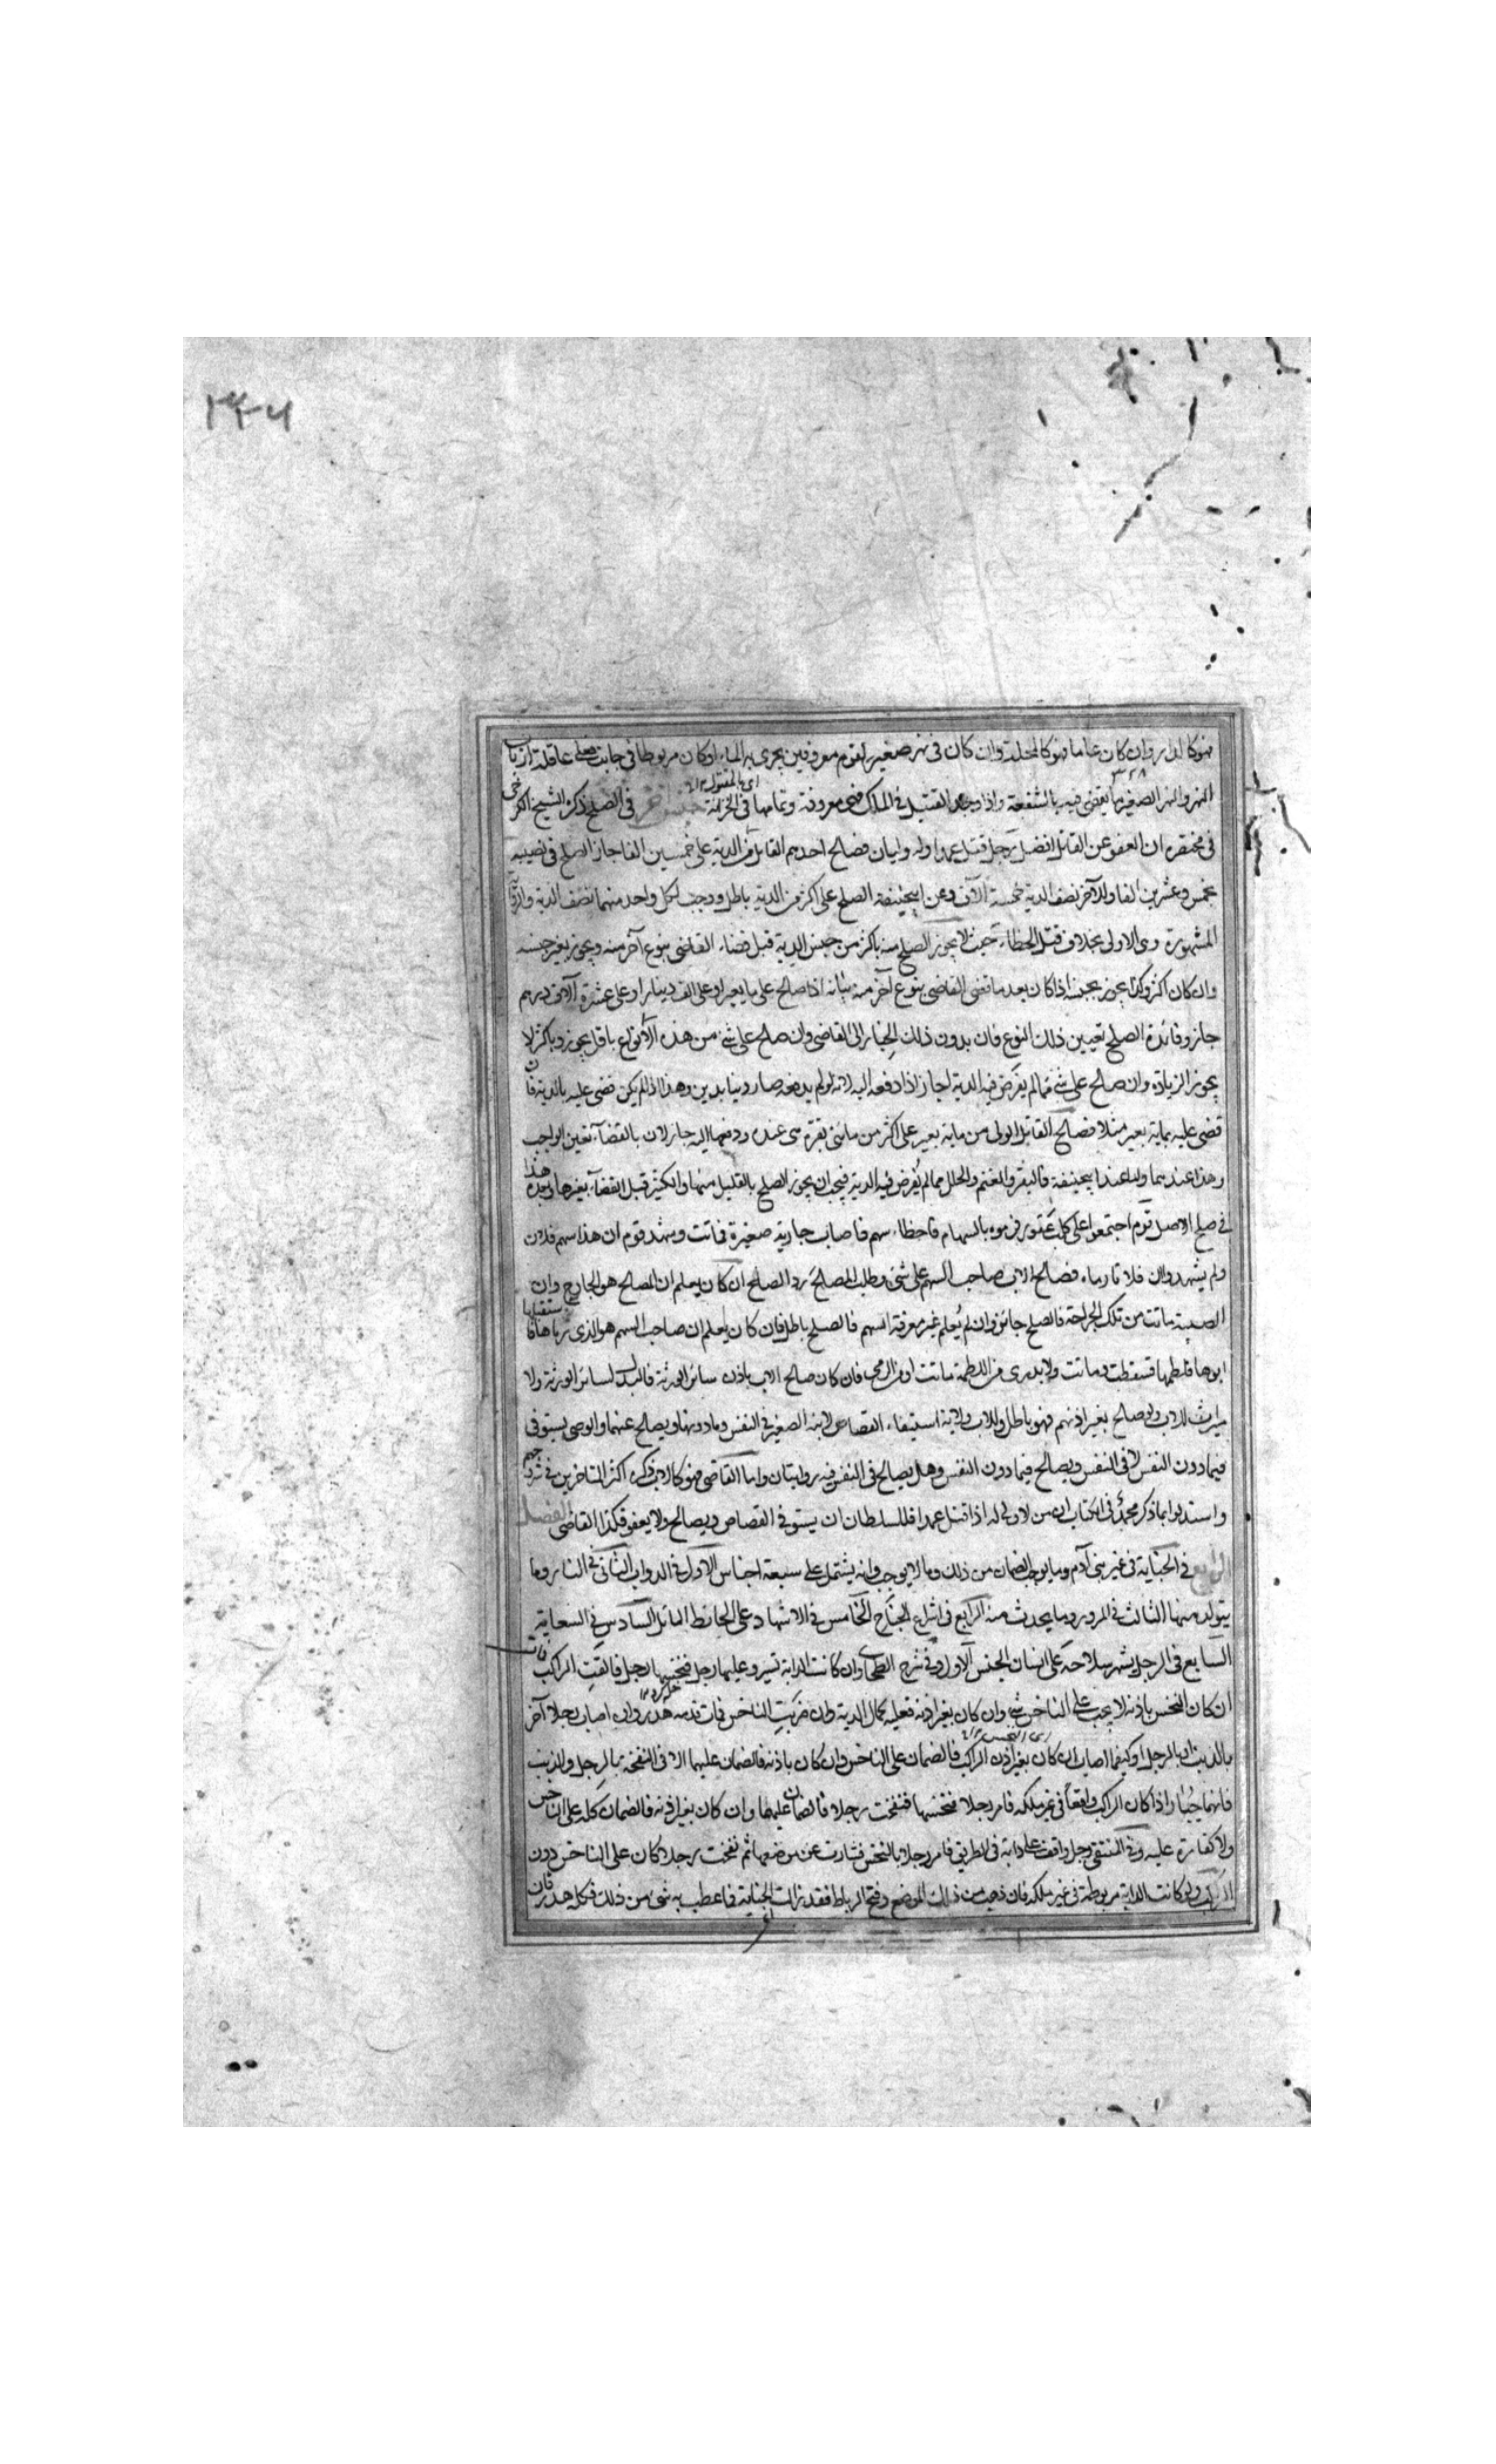 ٣٣٦
فهو كالدار وان كان عاما فهو كالمحلة وان كان فى نهر صغير لقوم معروفين يجرى به الماء اوكان مربوطا فى جانبه فعلى عاقلة ارباب
٣٢٨
اى المقتول ١٢
النهر والنهر الصغير ما يقضى فيه بالشفعة واذا وجد القتيل فى الملك فهى معروفة وتمامها فى الخزانة جنس آخر فى الصلح ذكر الشيخ الكرخى
فى مختصره ان العفو عن القاتل افضل رجل قتل عمدا وله وليان فصالح احدهم القاتل من الدية على خمسين الفا جاز الصلح فى نصيبه
بخمس وعشرين الفا وللآخر نصف الدية خمسة آلاف وعن ابيحنيفة الصلح على اكثر من الدية باطل ووجب لكل واحد منهما نصف الدية والرواية
المشهورة هى الاولى بخلاف قتل الخطاء حيث لا يجوز الصلح منه باكثر من جنس الدية قبل قضاء القاضى بنوع آخر منه ويجوز بغير جنسه
وان كان اكثر وكذا يجوز بجنسه اذا كان بعد ما قضى القاضى بنوع آخر منه بيانه اذا صالح على ماية بعير او على الف دينار او على عشرة آلاف درهم
جاز وفائدة الصلح تعيين ذلك النوع فان بدون ذلك الخيار الى القاضى وان صالح على شئ من هذه الأنواع باقل يجوز وباكثر لا
يجوز الزيادة وان صالح على شئ مما لم يفرض فيه الدية لجاز اذا دفعه اليه لانه لو لم يدفعه صار دينا بدين وهذا اذا لم يكن قضى عليه بالدية فان
قضى عليه بماية بعير مثلا فصالح القاتل الولى من ماية بعير على اكثر من مائتى بقرة هى عنده ودفعها اليه جاز لان بالقضاء تعين الواجب
وهذا عندهما واما عند ابيحنيفة فالبقر والغنم والحلل مما لم يفرض فيه الدية فيجب ان يجوز الصلح بالقليل منها والكثير قبل القضاء بغيرها وبعده هذا
فى صلح الاصل قوم اجتمعوا على كلب عقور فرموه بالسهام فاخطاء سهم فاصاب جارية صغيرة فماتت وشهد قوم ان هذا سهم فلان
ولم يشهدوا ان فلانا رماه فصالح الاب صاحب السهم على شئ وطلب المصالح رد الصلح ان كان يعلم ان المصالح هو الجارح وان
الصبية ماتت من تلك الجراحة فالصلح جائز وان لم يعلم غير معرفة السهم فالصلح باطل فان كان يعلم ان صاحب السهم هو الذى رماها فاستقبلها
ابوها فلطمها فسقطت وماتت ولا يدرى من اللطمة ماتت او من الرمى فان كان صالح الاب باذن سائر الورثة فالبدل لسائر الورثة ولا
ميراث للاب ولو صالح بغير اذنهم فهو باطل وللاب ولاية استيفاء القصاص لابنه الصغير فى النفس وما دونها ويصالح عنهما والوصى يستوفى
فيما دون النفس لا فى النفس ويصالح فيما دون النفس وهل يصالح فى النفس فيه روايتان واما القاضى فهو كالاب ذكره اكثر المتاخرين فى شروحهم
واستدلوا بما ذكر محمد فى الكتاب ان من لا ولى له اذا قتل عمدا فللسلطان ان يستوفى القصاص ويصالح ولا يعفو فكذا القاضى الفصل
الرابع فى الجناية فى غير بنى آدم وما يوجب الضمان من ذلك وما لا يوجب وانه يشتمل على سبعة اجناس الاول فى الدواب الثانى فى النار وما
يتولد منها الثالث فى المرور وما يحدث منه الرابع فى اشراع الجناح الخامس فى الاشهاد على الحائط المائل السادس فى السعاية
السابع فى الرجل يشهر سلاحه على انسان الجنس الاول وفى شرح الطحاوى وان كانت الدابة تسير وعليها رجل فنخسها رجل فالقت الراكب فمات
ان كان النخس باذنه لا يجب على الناخس شئ وان كان بغير اذنه فعليه كمال الدية وان ضربت الناخس فمات فدمه هدر وان اصاب رجلا آخر
اى النخس ١٢
بالذنب او بالرجل او كيفما اصاب ان كان بغير اذن الراكب فالضمان على الناخس وان كان باذنه فالضمان عليهما الا فى النفحة بالرجل والذنب
فانهما جبار واذا كان الراكب واقفا فى غير ملكه فامر رجلا فنخسها فنفحت رجلا فالضمان عليهما وان كان بغير اذنه فالضمان كله على الناخس
ولا كفارة عليه وفى المنتقى رجل واقف على دابة فى الطريق فامر رجلا بالنخس فسارت عن موضعها ثم نفحت رجلا كان على الناخس دون
الراكب ولو كانت الدابة مربوطة فى غير ملكه فان ذهبت من ذلك الموضع وفتح الرباط فقد زالت الجناية فما عطب به شئ من ذلك فكله هدر فان